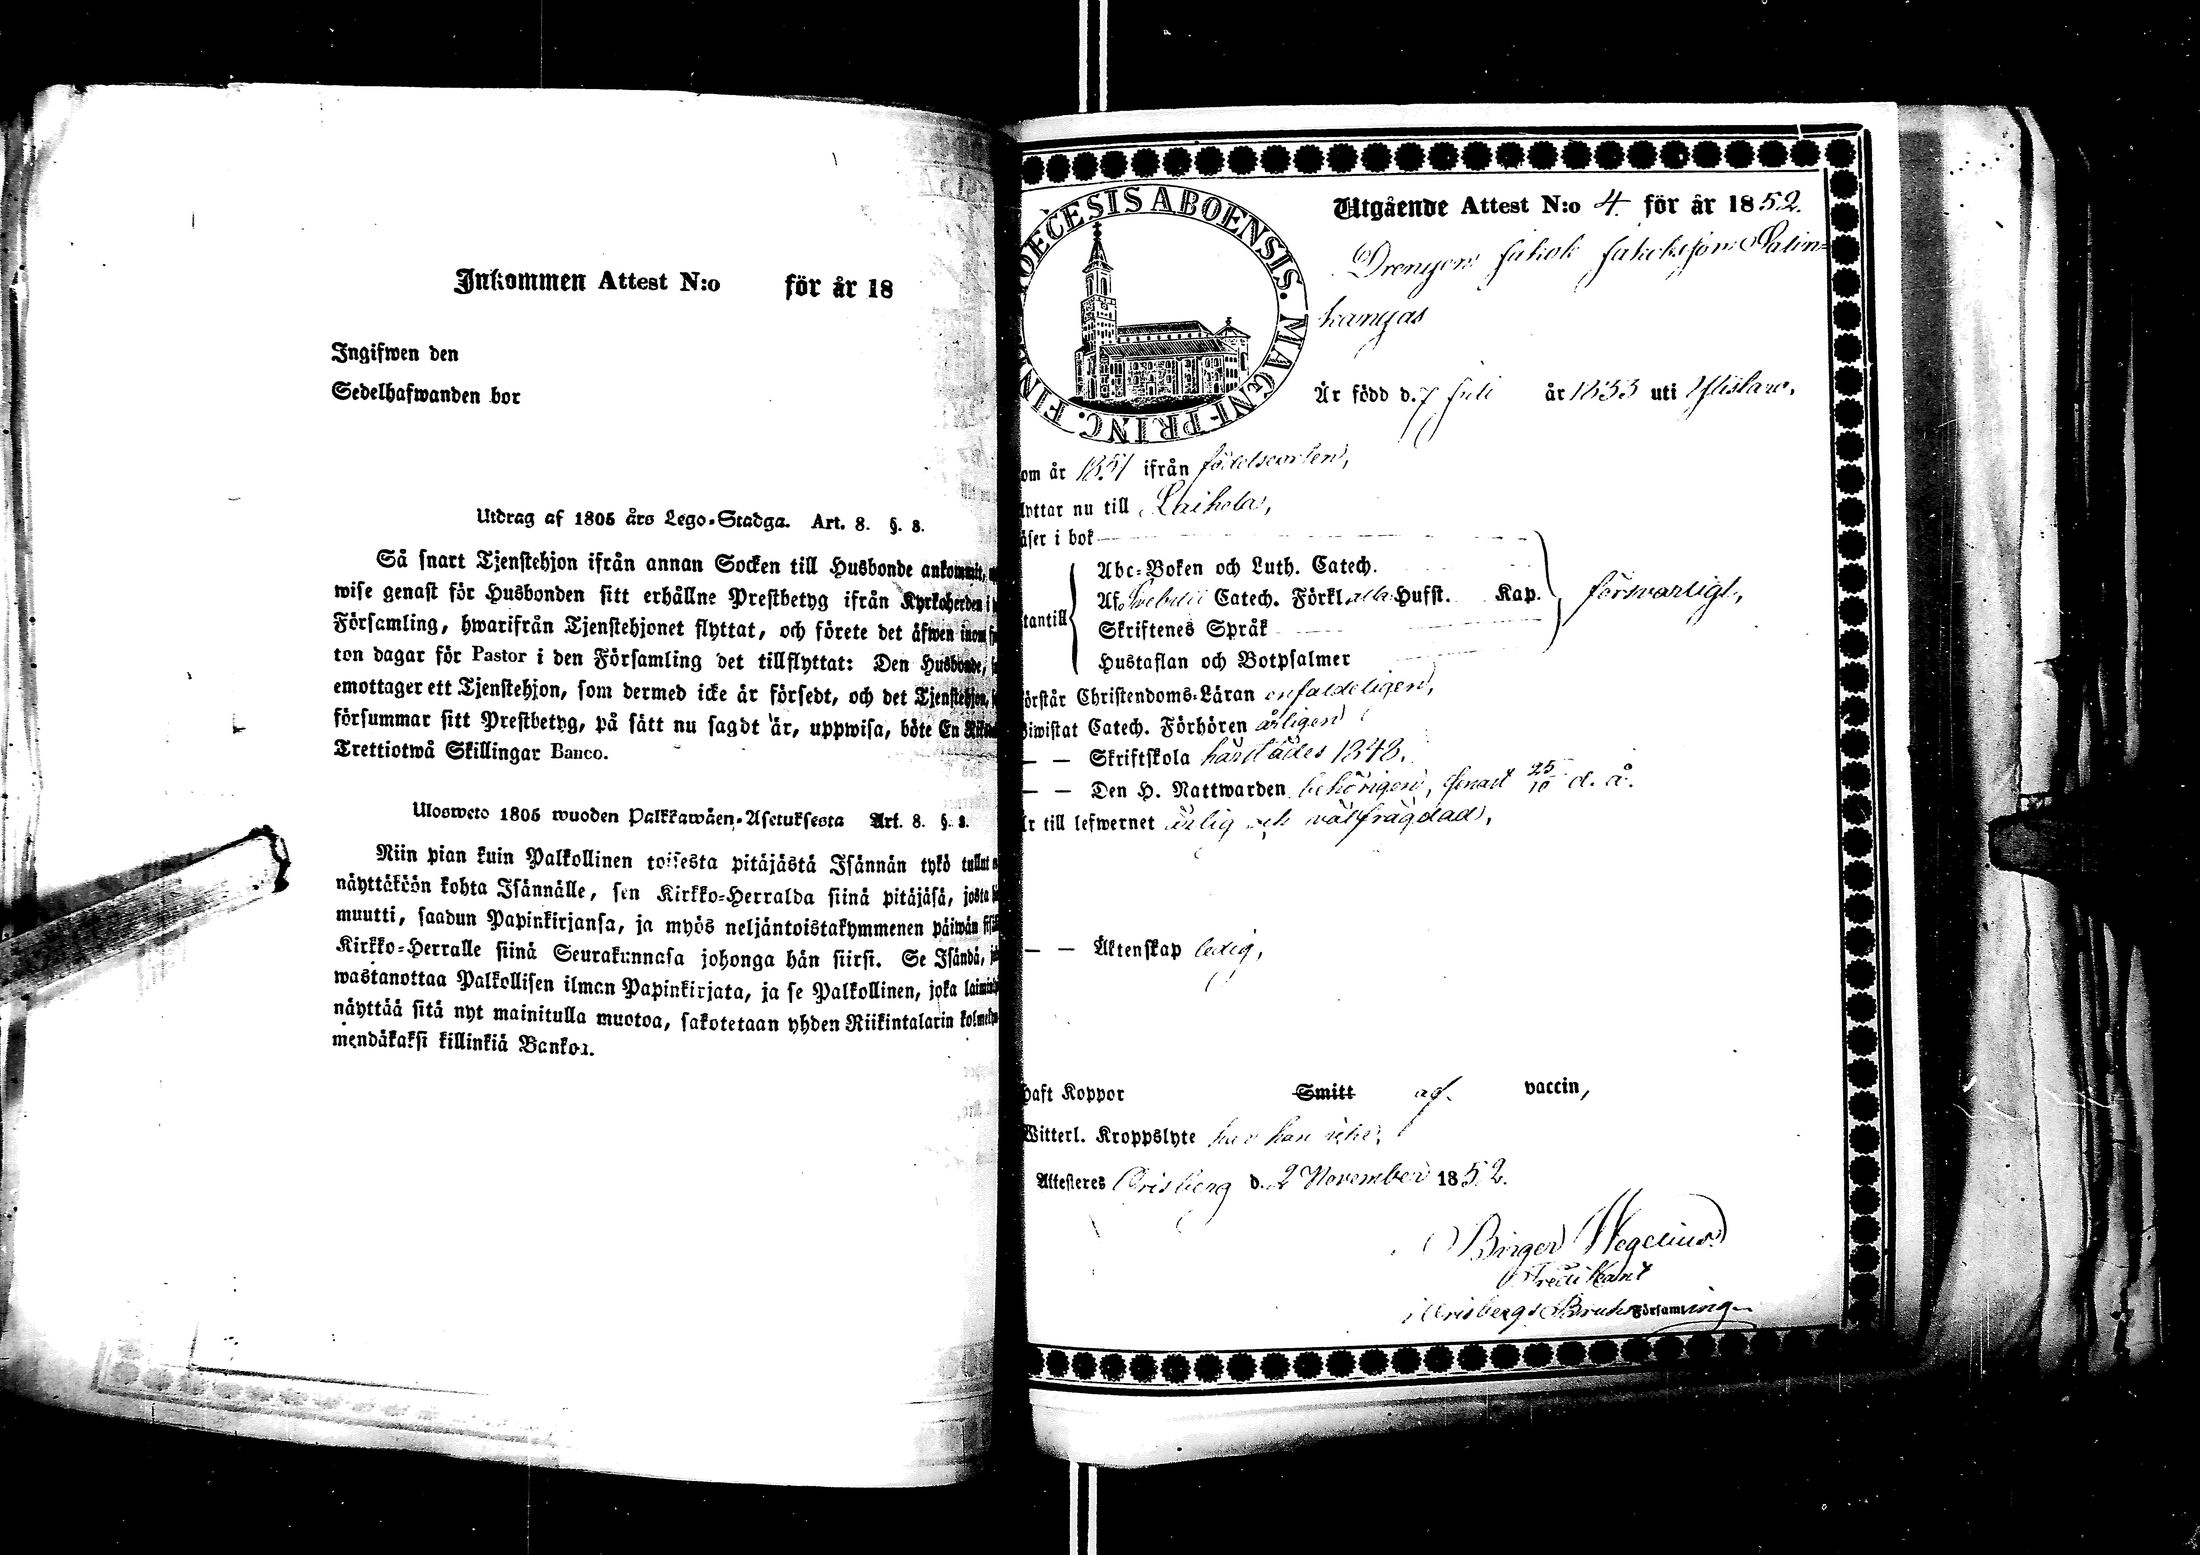 Inkommen Attest N:o för år 18
Ingifwen den
Sedelhafwanden bor
Utdrag af 1805 års Lego-Stadga. Art. 8. §. 8.
Så snart Tjenstehjon ifrån annan Socken till Husbonde ankommit,
wise genast för Husbonden sitt erhållne Prestbetyg ifrån Kyrkoherden i
Församling, hwarifrån Tjenstehjonet flyttat, och förete det äfwen inom
ton dagar för Pastor i den Församling det tillflyttat: Den Husbonde,
emottager ett Tjenstehjon, som dermed icke är försedt, och det Tjenstehjon,
försummar sitt Prestbetyg, på sätt nu sagdt är, uppwisa, böte En
Trettiotwå Skillingar Banco.
Ulosweto 1805 wuoden Palkkawäen-Asetuksesta Art. 8. §. 8.
Niin pian kuin Palkollinen toisesta pitäjästä Isännän tykö tullut
näyttäköön kohta Isännälle, sen Kirkko-Herralda siinä pitäjäsä, josta
muutti, saadun Papinkirjansa, ja myös neljäntoistakymmenen päiwän
Kirkko-Herralle siinä Seurakunnasa johonga hän siirsi. Se Isändä,
wastanottaa Palkollisen ilman Papinkirjata, ja se Palkollinen, joka
näyttää sitä nyt mainitulla muotoa, sakotetaan yhden Riikintalarin
mendäkaksi killinkiä Bankoa.
DIOECESIS ABOENSIS. MAGNI PRINC. FIN
Utgående Attest N:o 4. för år 1852.
Drengen Jakob Jakobsson Palin-
kangas
Är född d. 7 Juli år 1833 uti Ylistaro,
om år 1851 ifrån födelseorten,
lyttar nu till Laihela,
äser i bok
Abc-Boken och Luth. Catech.
Af Svebelii Catech. Förkl. alla Hufst. Kap.
tantill
försvarligt,
Skriftenes Språk
Hustaflan och Botpsalmer
örstår Christendoms-Läran enfaldeligen,
iwistat Catech. Förhören årligen
— — Skriftskola härstädes 1848.
— — Den H. Nattwarden behörigen, senast 25/10 d. å.
r till lefwernet ärlig och välfrägdad,
— — Äktenskap ledig,
haft Koppor Smitt af vaccin,
Witterl. Kroppslyte har han icke,
Attesteres Orisberg d. 2 November 1852.
Birger Wegelius
Predikant
i Orisbergs Bruks Församling